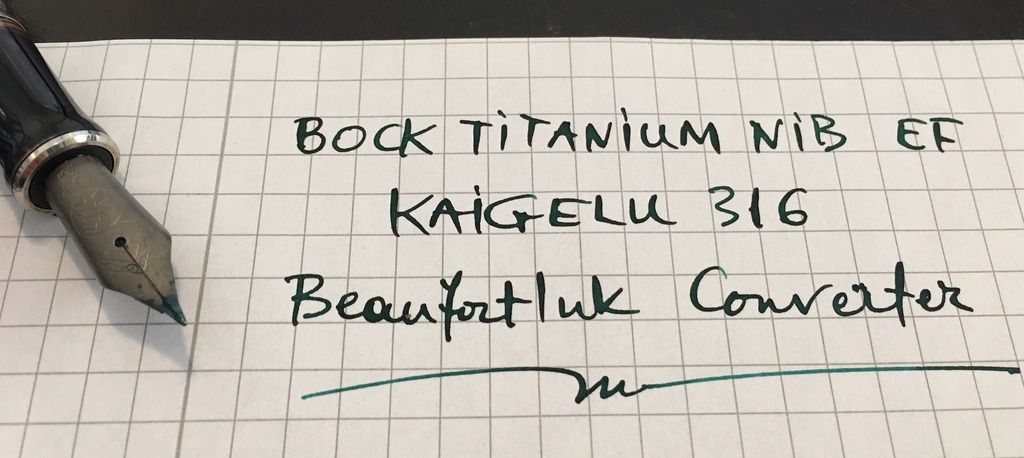 BOCK TITANIUM NIB EF
KAIGELU 316
Beaufort Ink Converter